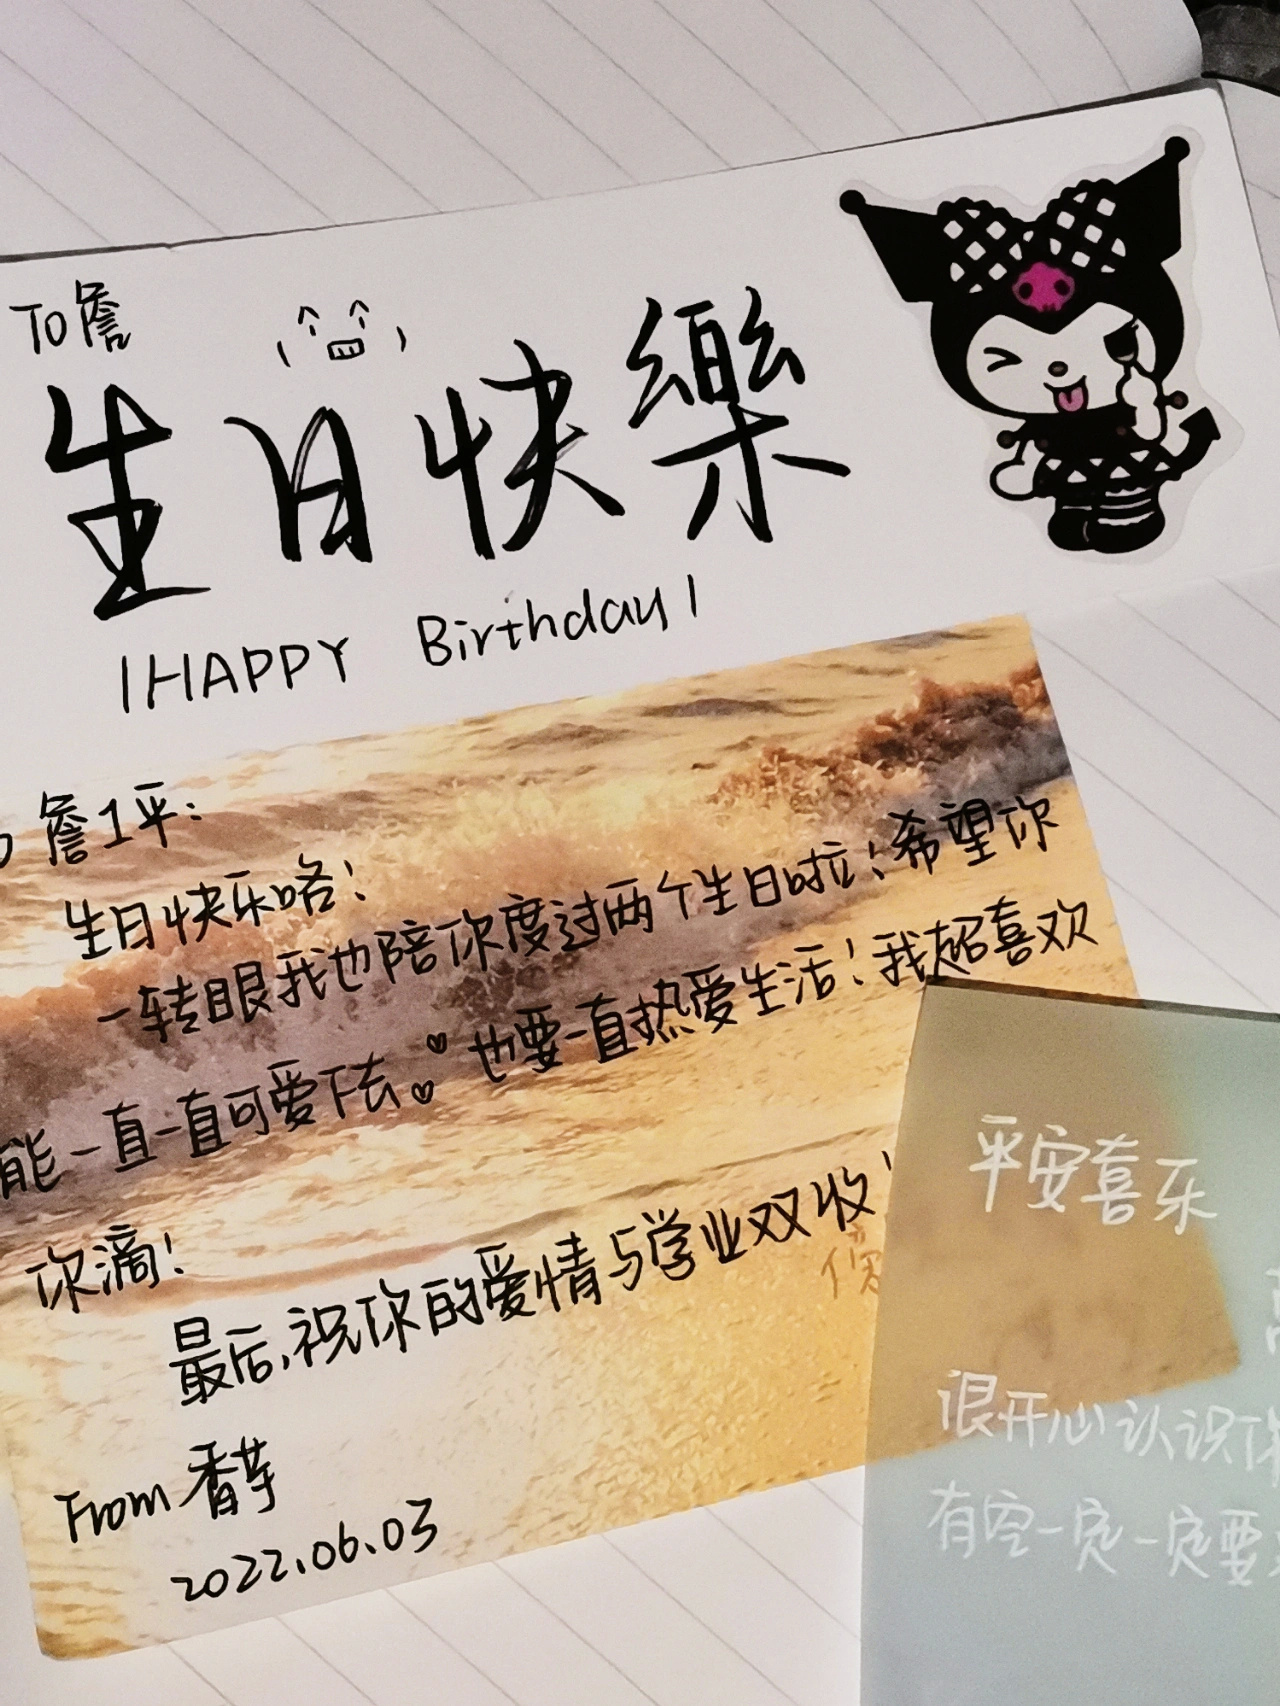 To 詹
生日快樂
HAPPY Birthday
詹1平：
生日快乐咯！
一转眼我也陪你度过两个生日啦！希望你
能一直一直可爱下去。也要一直热爱生活！我超喜欢
你滴！
最后，祝你的爱情与学业双收！
From 香芋
2022.06.03
平安喜乐
很开心认识你
有空一定一定要